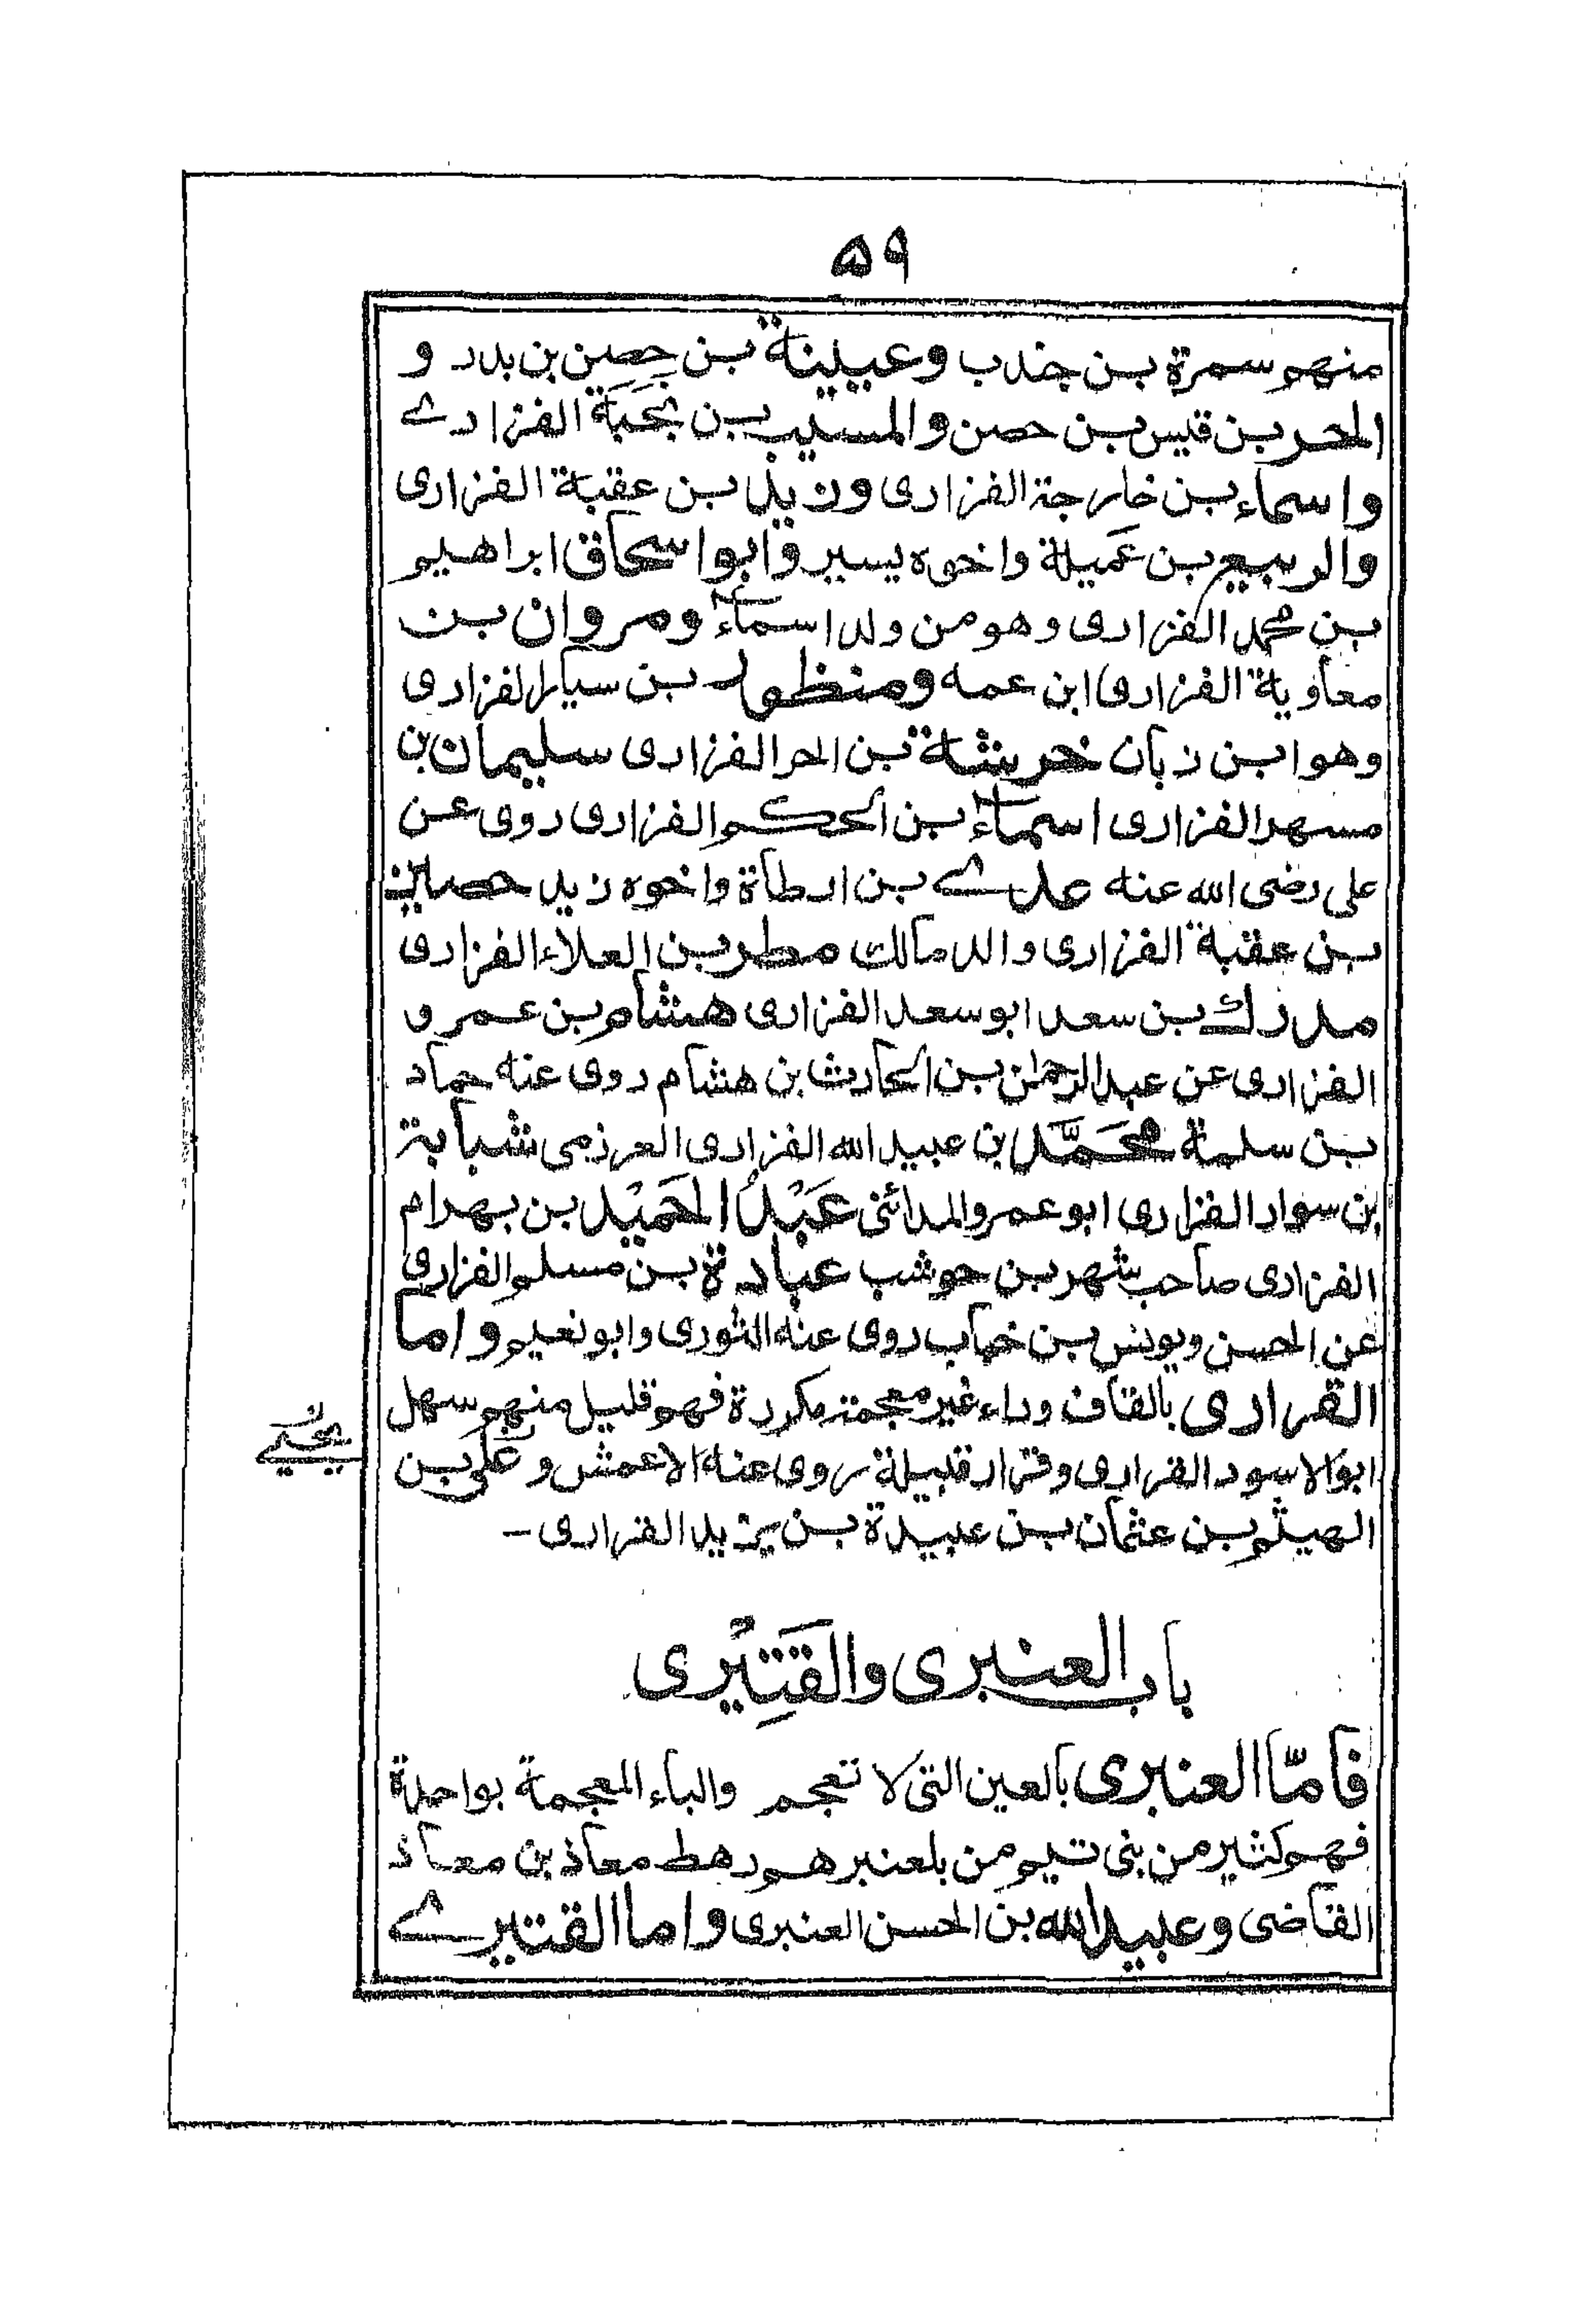 ٥٩
منهم سمرة بن جندب وعيينة بن حصين بن بدر و
الحر بن قيس بن حصن والمسيب بن نَجَبَة الفزاري
واسماء بن خارجة الفزاري وزيد بن عقبة الفزاري
والربيع بن عَميلة واخوه يسير وابو اسحاق ابراهيم
بن محمد الفزاري وهو من ولد اسماء ومروان بن
معاوية الفزاري ابن عمه ومنظور بن سيار الفزاري
وهو ابن زبان خرشة بن الحر الفزاري سليمان بن
مسهر الفزاري اسماء بن الحكم الفزاري روى عن
على رضى الله عنه عدي بن ارطاة واخوه زيد حصين
بن عقبة الفزاري والد مالك مطر بن العلاء الفزاري
مدرك بن سعد ابو سعد الفزاري هشام بن عمرو
الفزاري عن عبد الرحمن بن الحارث بن هشام روى عنه حماد
بن سلمة محَمَّد بن عبيد الله الفزاري العرزمى شبابة
بن سوار الفزاري ابو عمرو المدائنى عَبْدُ الحَمِيْد بن بهرام
الفزاري صاحب شهر بن حوشب عبادة بن مسلم الفزاري
عن الحسن ويونس بن خباب روى عنه الثورى وابو نعيم واما
القراري بالقاف وراء غير معجمة مكررة فهو قليل منهم سهل
ابو الاسود القراري وقرار قبيلة روى عنه الاعمش وعلى بن
يحيى
الهيثم بن عثمان بن عبيدة بن يزيد الفزاري -
باب العنبرى والقَتِيْرى
فامّا العنبرى بالعين التى لا تعجم والباء المعجمة بواحدة
فهم كثير من بنى تميم من بلعنبر هم رهط معاذ بن معاذ
القاضى وعبيد الله بن الحسن العنبرى واما القتيرے